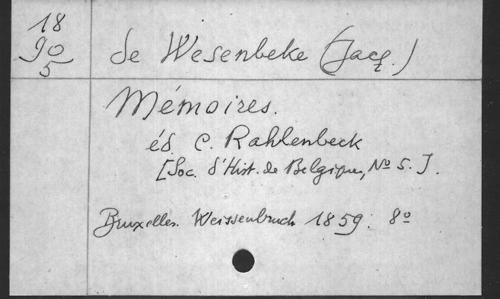 18
90
5
de Wesenbeke (Jacq.)
Mémoires.
éd. C. Rahlenbeck
[Soc. d'Hist. de Belgique, No 5.].
Bruxelles. Weissenbruch 1859. 8o